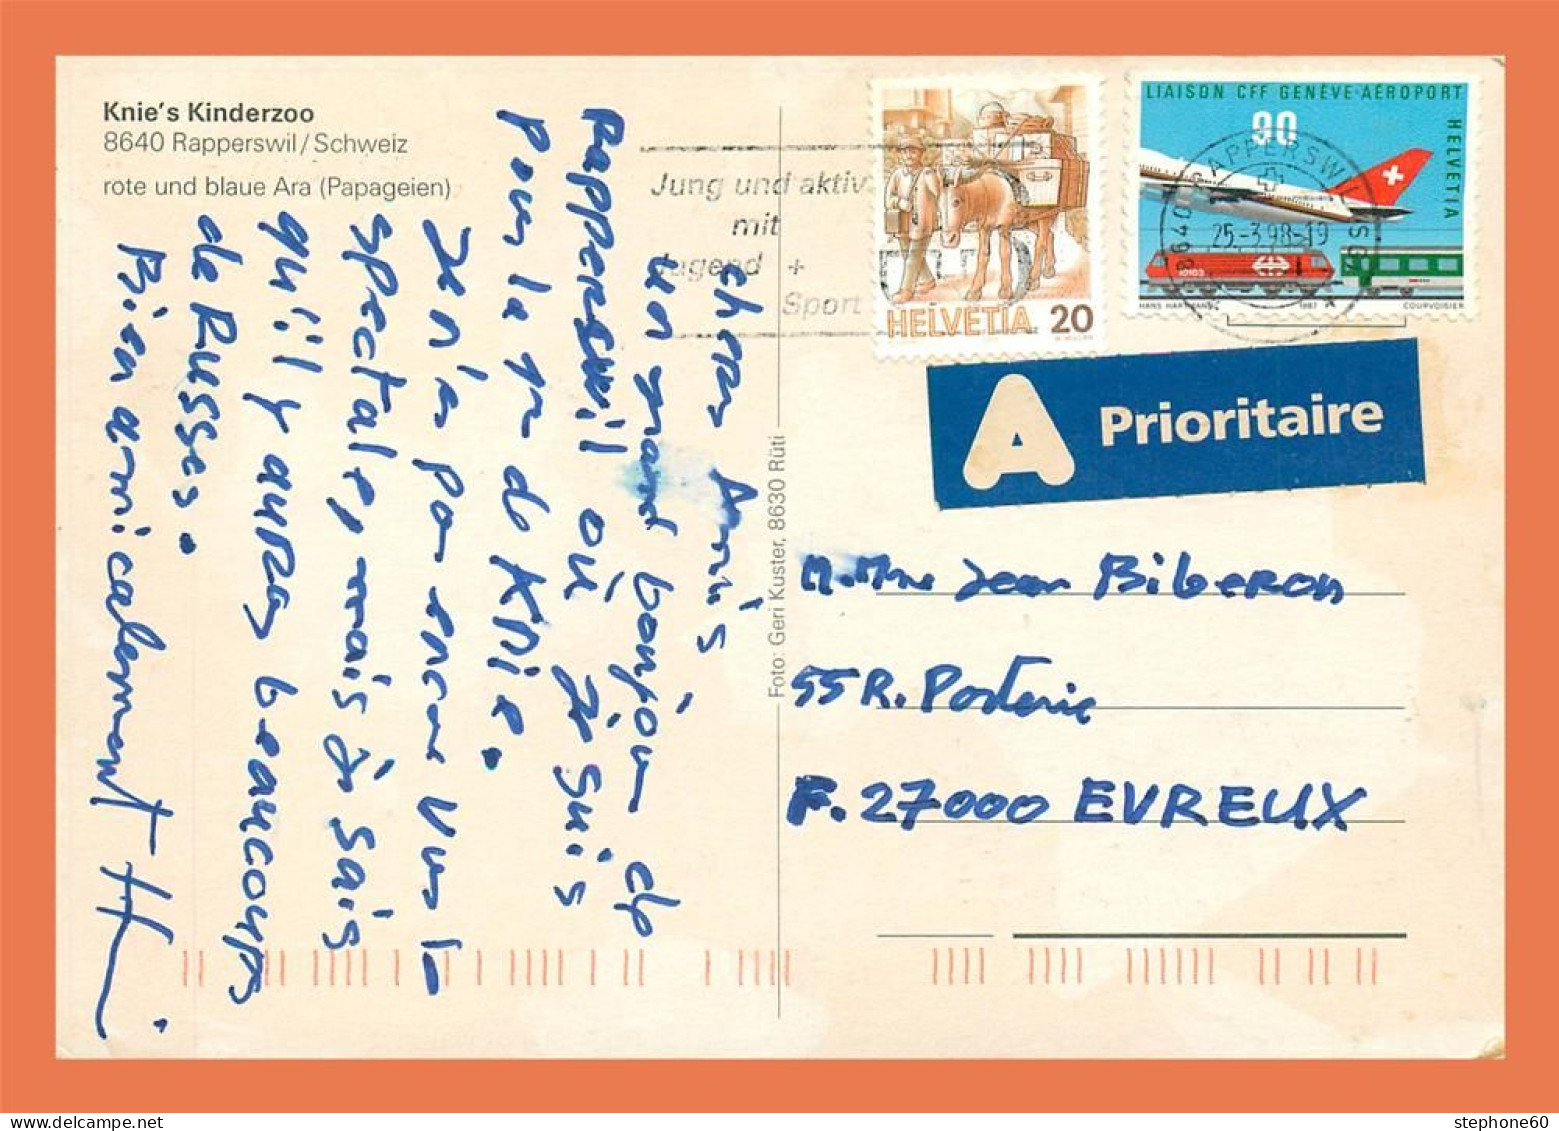 Knie's Kinderzoo
8640 Rapperswil/Schweiz
rote und blaue Ara (Papageien)
chers Amis
un grand bonjour de
Rapperswil où je suis
pour la 1re de Knie.
Je n'ai pas encore vu le
spectacle, mais je sais
qu'il y aura beaucoups
de Russes.
Bien amicalement
Foto: Geri Kuster, 8630 Rüti
Jung und aktiv
mit
Jugend +
Sport
HELVETIA 20
LIAISON CFF GENÈVE-AÉROPORT
90
HELVETIA
10103
HANS HARTMANN 1987 COURVOISIER
8640 RAPPERSWIL SG
25.-3.98-19
A Prioritaire
M. Mme Jean Biberon
55 R. Posterie
F. 27000 EVREUX
stephone60